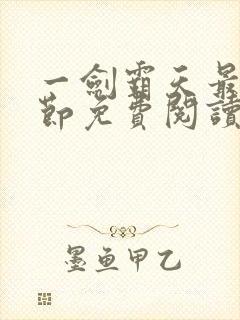 一劍霸天最
節免費閱讀
墨魚甲乙